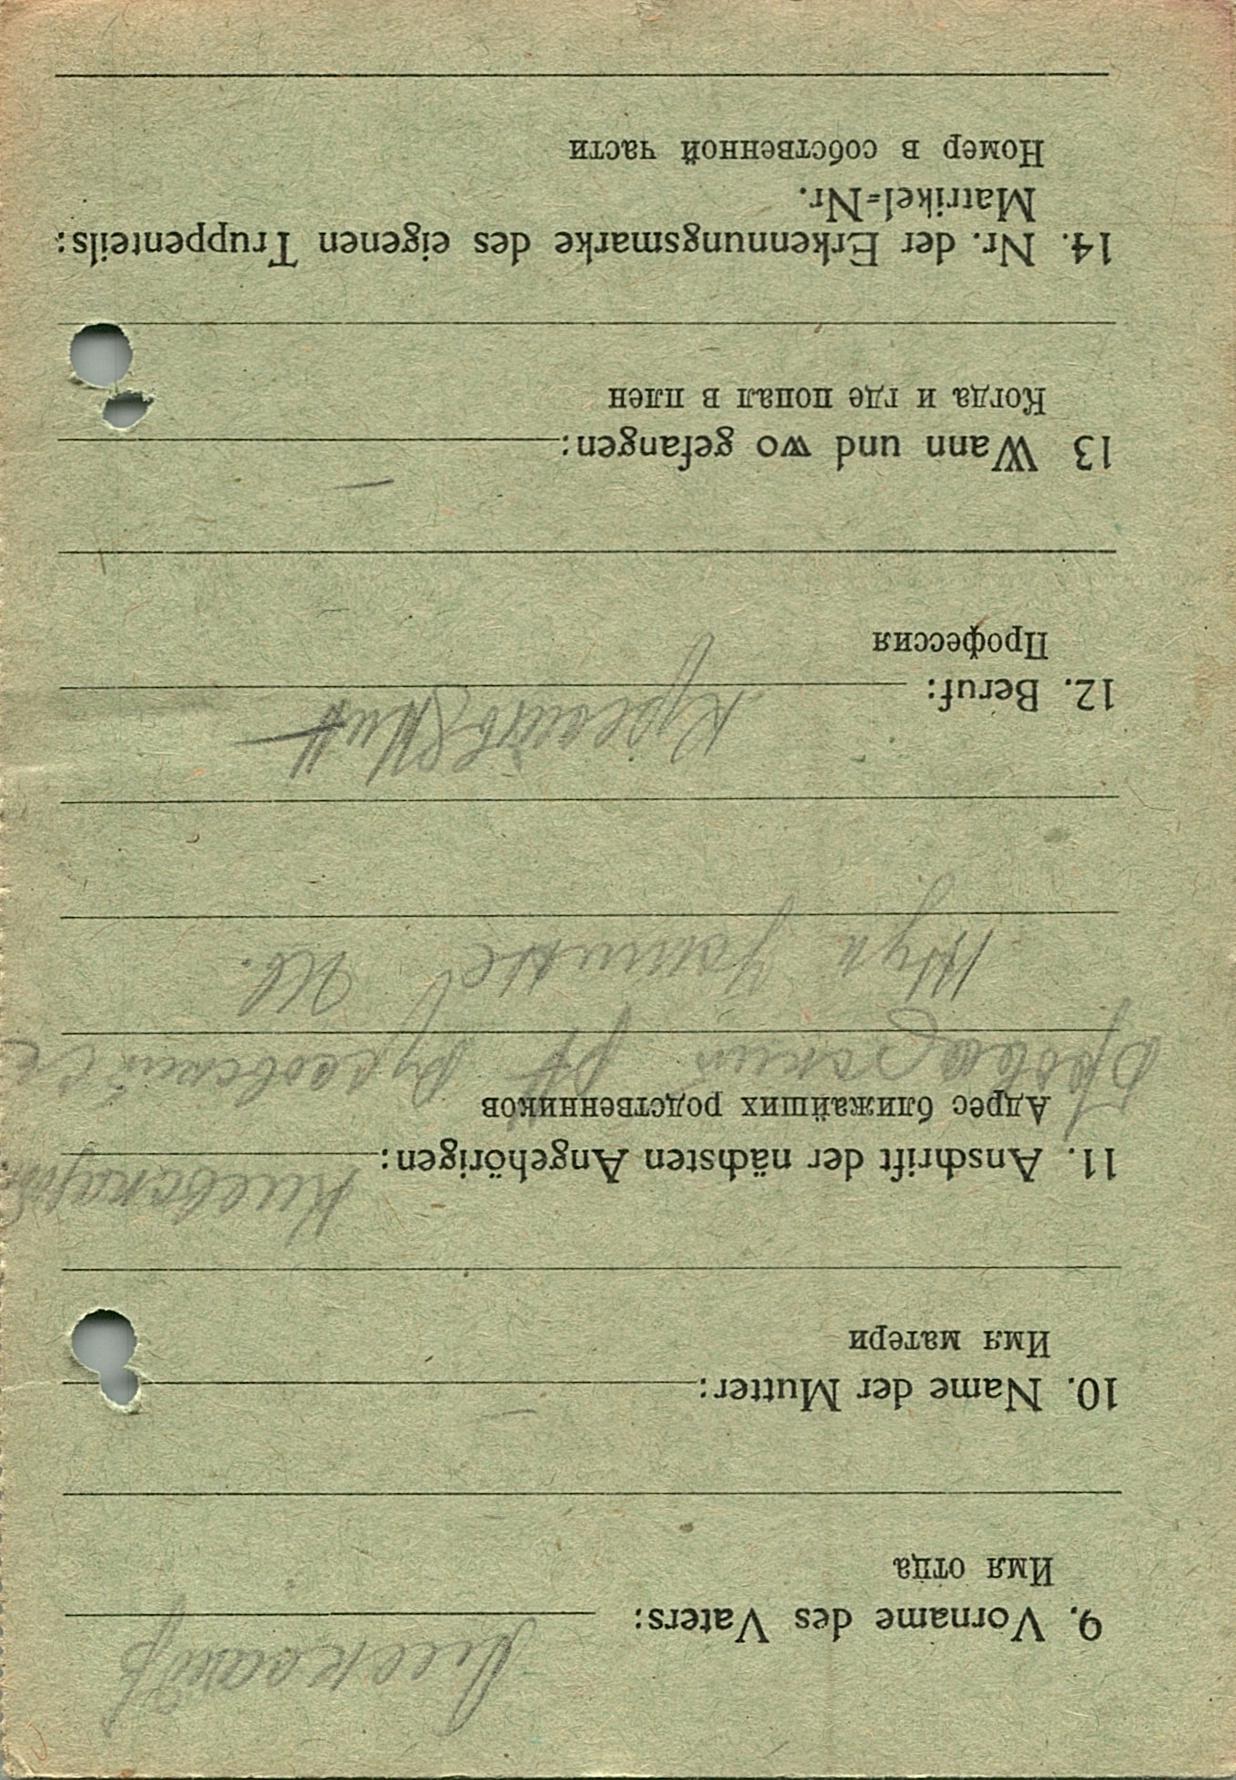 9. Vorname des Vaters: Александр
Имя отца
10. Name der Mutter: —
Имя матери
11. Anschrift der nächsten Angehörigen: Киевская
Адрес ближайших родственников
Броварский
12. Beruf:
Профессия
13 Wann und wo gefangen: —
Когда и где попал в плен
14. Nr. der Erkennungsmarke des eigenen Truppenteils:
Matrikel=Nr.
Номер в собственной части